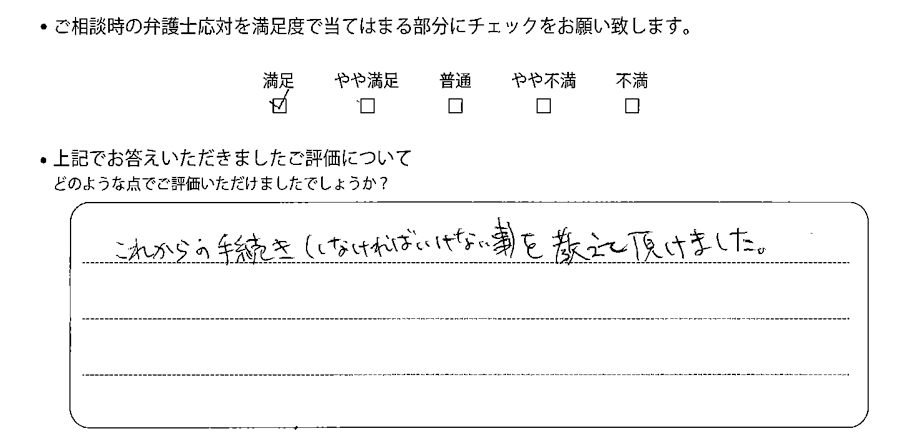 • ご相談時の弁護士応対を満足度で当てはまる部分にチェックをお願い致します。
満足 やや満足 普通 やや不満 不満
☑ □ □ □ □
• 上記でお答えいただきましたご評価について
どのような点でご評価いただけましたでしょうか？
これからの手続き しなければいけない事を教えて頂けました。